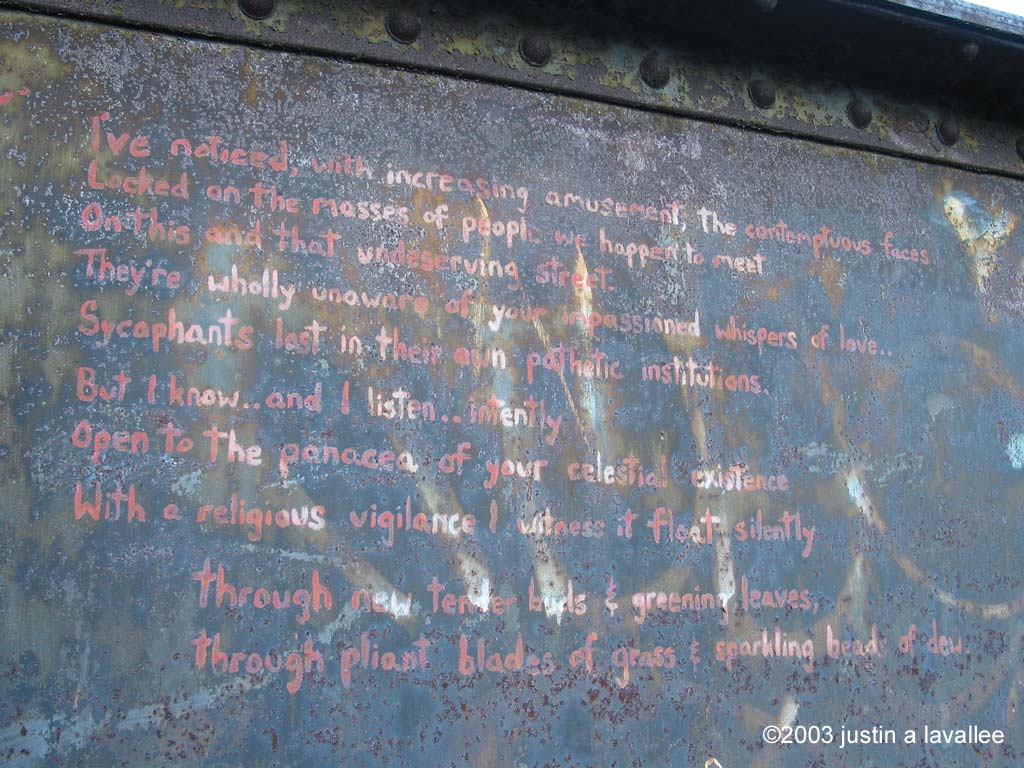 I've noticed, with increasing amusement, the contemptuous faces
Locked on the masses of people we happen to meet
On this and that undeserving street.
They're wholly unaware of your impassioned whispers of love..
Sycaphants lost in their own pathetic institutions.
But I know..and I listen..intently
Open to the panacea of your celestial existence
With a religious vigilance I witness it float silently
through new tender buds & greening leaves,
through pliant blades of grass & sparkling beads of dew.
©2003 justin a lavallee